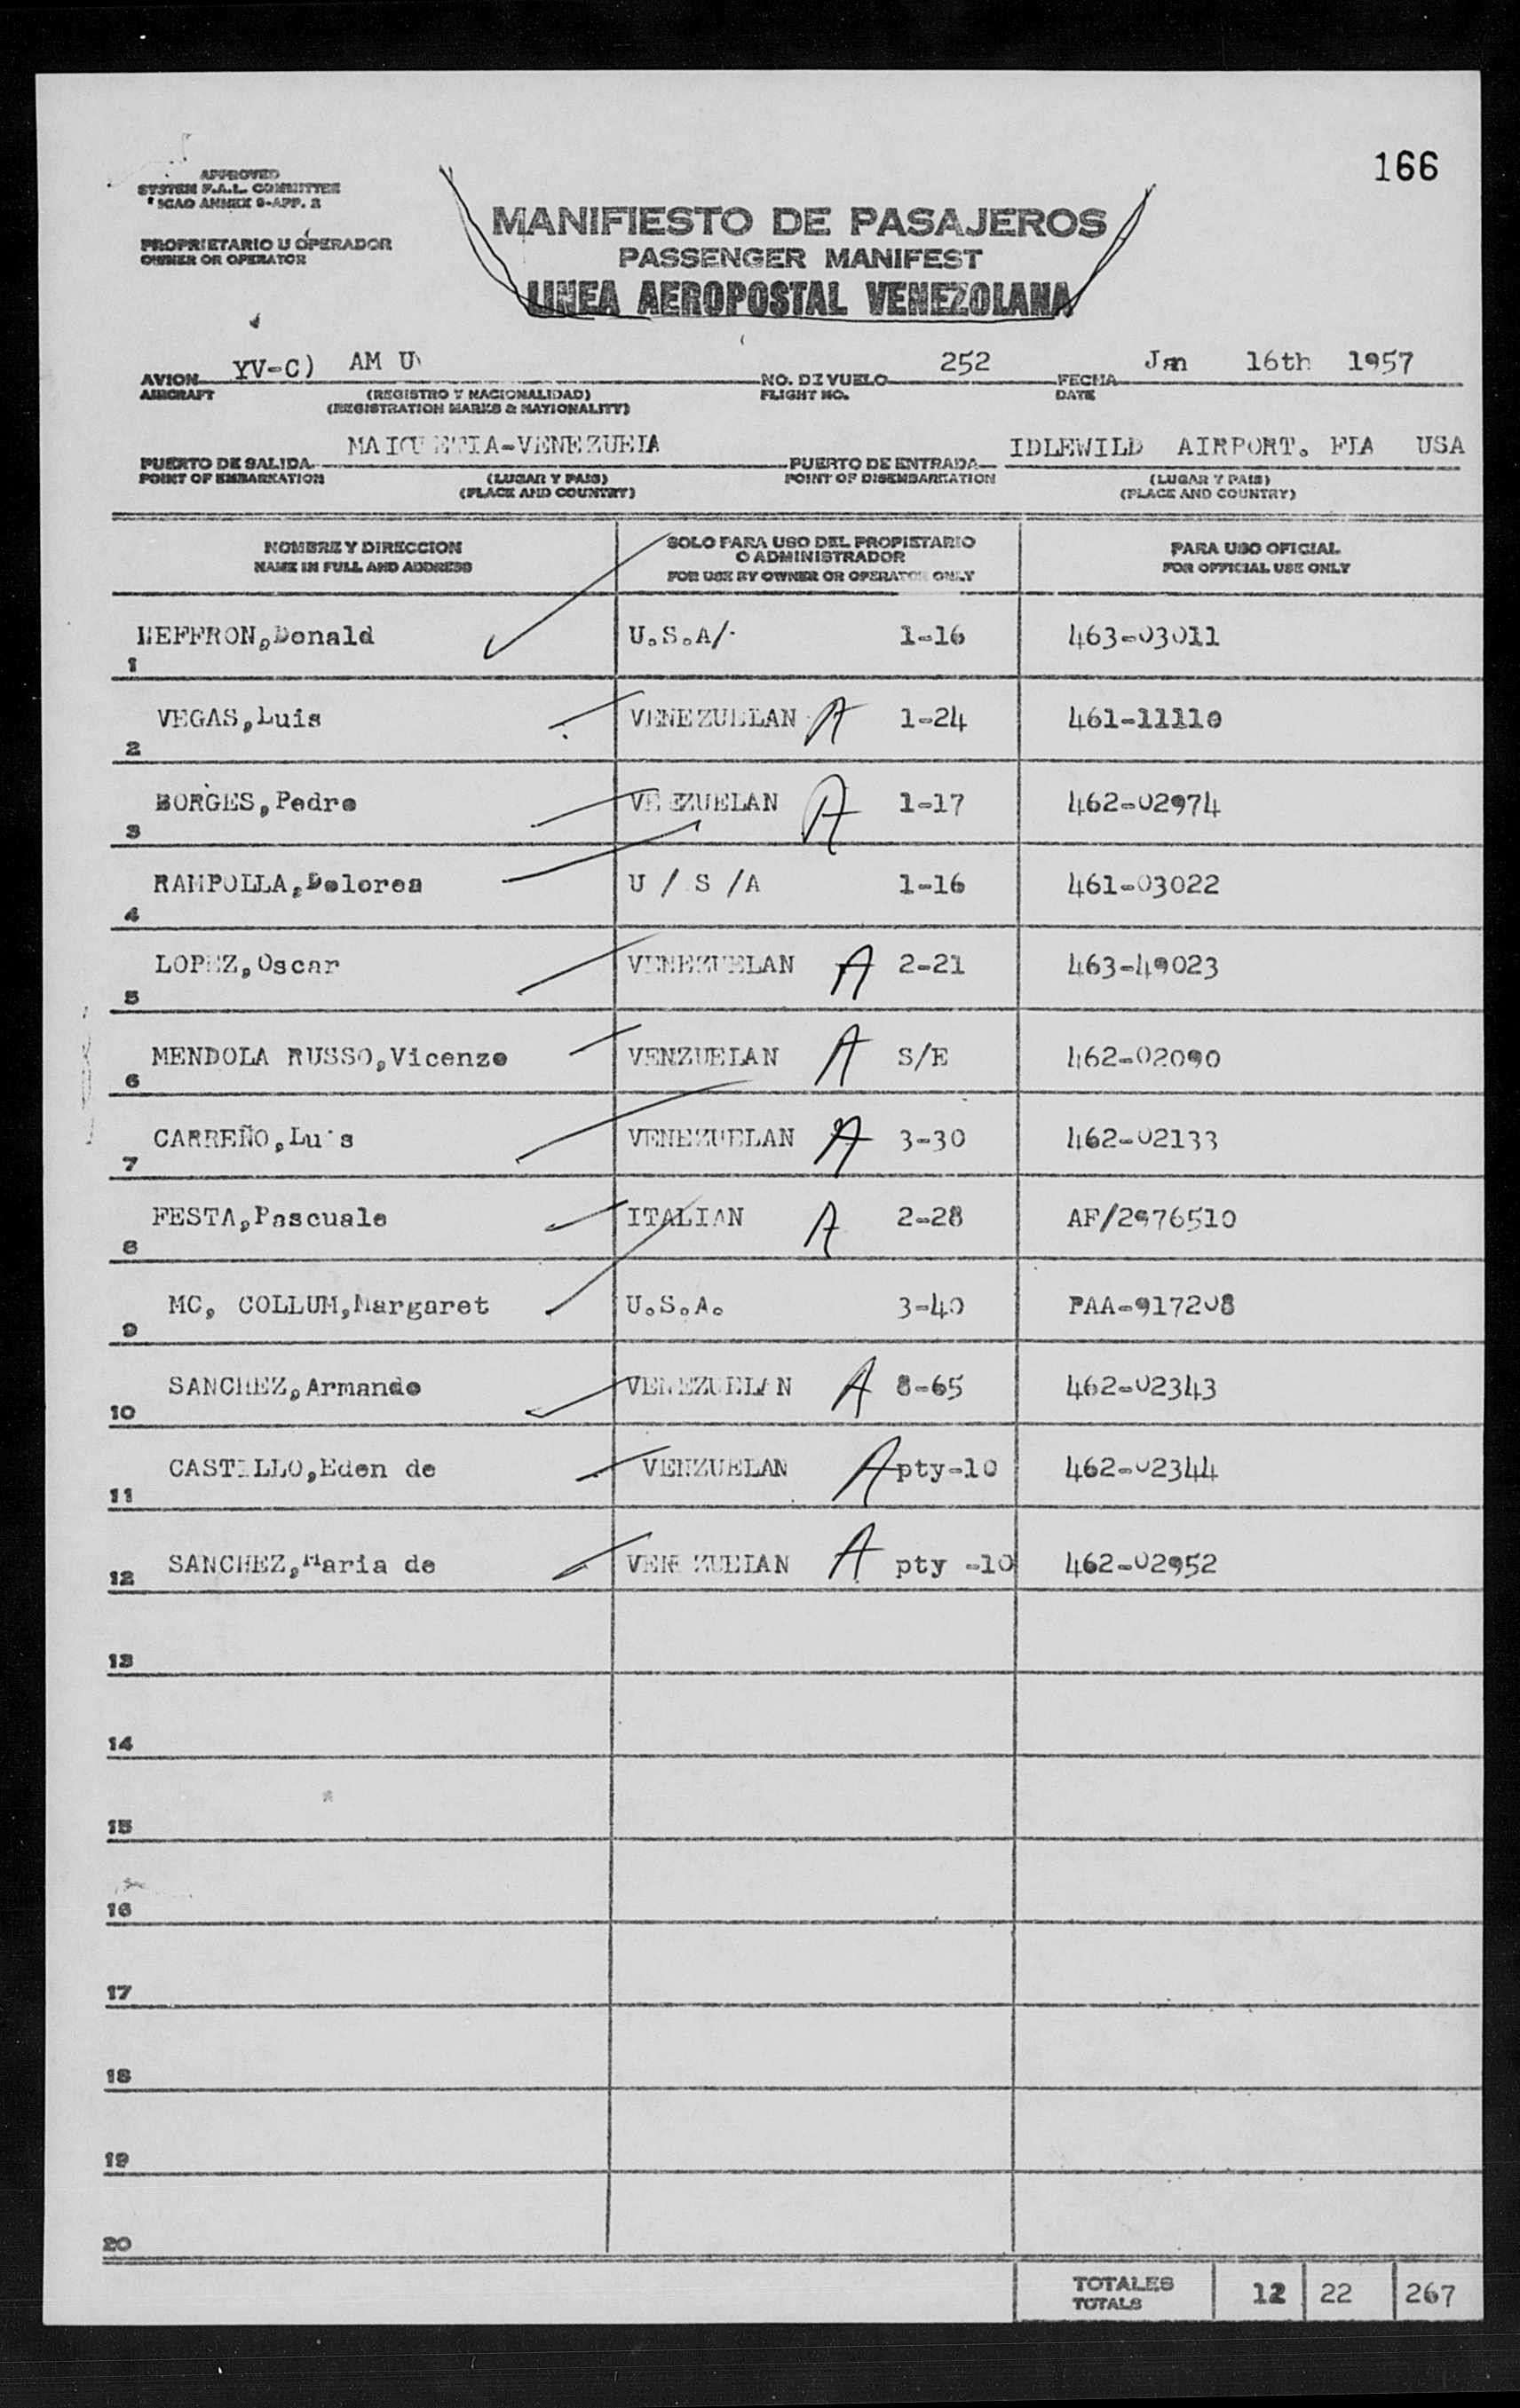 166
APPROVED
SYSTEM F.A.L. COMMITTEE
ICAO ANNEX 9-APP. 2
PROPRIETARIO U OPERADOR
OWNER OR OPERATOR
MANIFIESTO DE PASAJEROS
PASSENGER MANIFEST
LINEA AEROPOSTAL VENEZOLANA
AVION YV-C) AM U NO. DE VUELO 252 FECHA Jan 16th 1957
AIRCRAFT (REGISTRO Y NACIONALIDAD) FLIGHT NO. DATE
(REGISTRATION MARKS & NATIONALITY)
PUERTO DE SALIDA MAIQUETIA-VENEZUELA PUERTO DE ENTRADA IDLEWILD AIRPORT. FIA USA
POINT OF EMBARKATION (LUGAR Y PAIS) POINT OF DISEMBARKATION (LUGAR Y PAIS)
(PLACE AND COUNTRY) (PLACE AND COUNTRY)
NOMBRE Y DIRECCION SOLO PARA USO DEL PROPIETARIO O ADMINISTRADOR PARA USO OFICIAL
NAME IN FULL AND ADDRESS FOR USE BY OWNER OR OPERATOR ONLY FOR OFFICIAL USE ONLY
1 HEFFRON,Donald U.S.A/. 1-16 463-03011
2 VEGAS,Luis VENEZUELAN A 1-24 461-11110
3 BORGES,Pedro VE EZUELAN A 1-17 462-02974
4 RAMPOLLA,Dolores U / S /A 1-16 461-03022
5 LOPEZ,Oscar VENEZUELAN A 2-21 463-49023
6 MENDOLA RUSSO,Vicenzo VENZUELAN A S/E 462-02090
7 CARREÑO,Luis VENEZUELAN A 3-30 462-02133
8 FESTA,Pascuale ITALIAN A 2-28 AF/2976510
9 MC, COLLUM,Margaret U.S.A. 3-40 PAA-917208
10 SANCHEZ,Armando VENEZUELAN A 8-65 462-02343
11 CASTILLO,Eden de VENZUELAN A pty-10 462-02344
12 SANCHEZ,Maria de VENEZUELAN A pty -10 462-02952
13
14
15
16
17
18
19
20
TOTALES 12 22 267
TOTALS